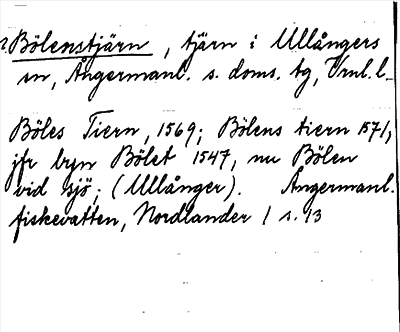 ?Bölenstjärn, tjärn i Ullångers
sn, Ångermanl. s. doms. tg, Vrnl. l.
Böles Tiern, 1569; Bölens tiern 1571,
jfr byn Bölet 1547, nu Bölen
vid sjö; (Ullånger). Ångermanl.
fiskevatten, Nordlander / s. 13